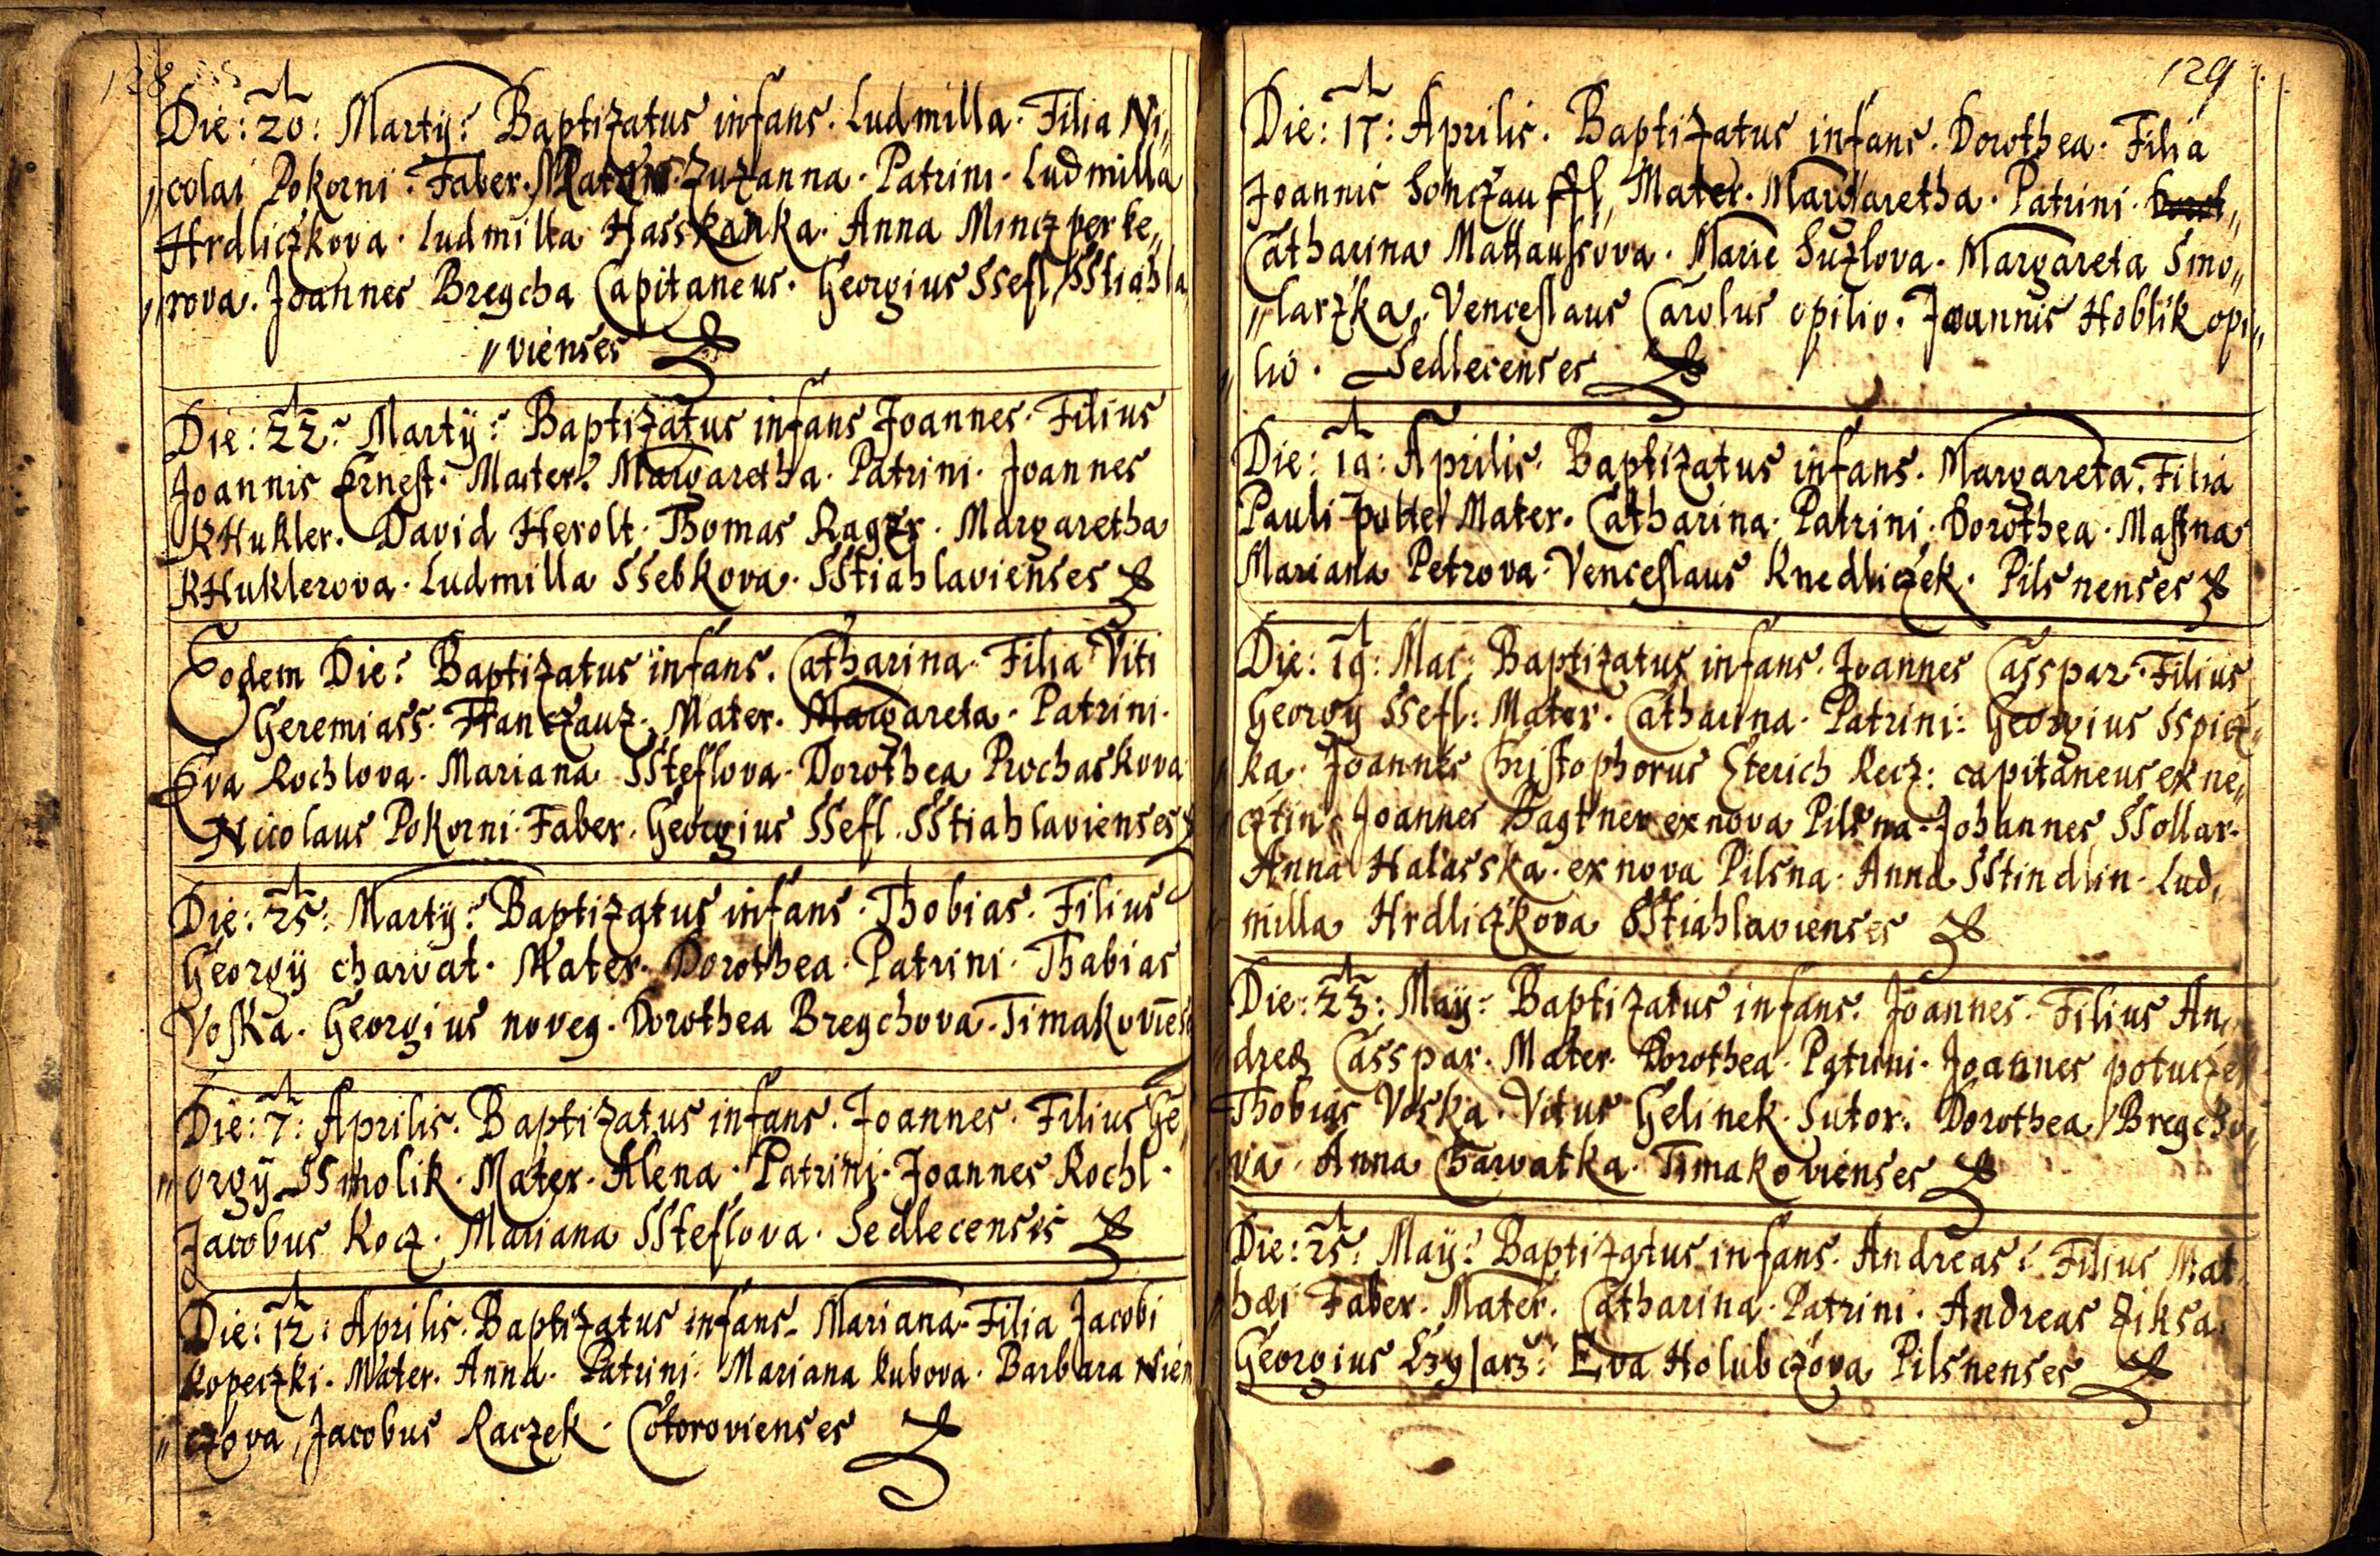 128
Die: 20: Martÿ: Baptizatus infans. Ludmilla. Filia Ni„
„colai Pokorni. Faber. Mater. Zuzanna. Patrini. Ludmilla
Hrdliczkova. Ludmilla Hasskanka. Anna Minczperke„
„rova. Joannes Bregcha Capitaneus. Georgius Ssefl, SStiahla
„vienses
Die: 22: Martÿ: Baptizatus infans Joannes. Filius
Joannis Ernest. Mater: Margaretha. Patrini. Joannes
KHukler. David Herolt. Thomas Rager. Margaretha
KHuklerova. Ludmilla SSebkova. SStiahlavienses
Eodem Die: Baptizatus infans. Catharina. Filia Viti
Geremiass. Hanczauz. Mater. Margareta. Patrini.
Eva Rochlova. Mariana SSteflova. Dorothea Prochaskova
Nicolaus Pokorni. Faber. Georgius SSefl. SStiahlavienses
Die: 25: Martÿ: Baptizatus infans. Thobias. Filius
Georgÿ charvat. Mater. Dorothea. Patrini. Thabias
Voska. Georgius noveg. Dorothea Bregchova. Timakoviens
Die: 7: Aprilis. Baptizatus infans. Joannes. Filius Ge„
„orgÿ SSmolik. Mater. Alena. Patrini. Joannes Rochl.
Jacobus Kocz. Mariana SSteflova. Sedlecensis
Die: 12: Aprilis. Baptizatus infans. Mariana. Filia Jacobi
Kopeczki. Mater. Anna. Patrini. Mariana Kubova. Barbara Niem
„czova, Jacobus Raczek. Cotorovienses
129
Die: 17: Aprilis. Baptizatus infans. Dorothea. Filia
Joannis Sonczauffl, Mater. Margaretha. Patrini.
Catharina Mattausova. Marie Suzlova. Margareta Smo„
„larzka. Venceslaus Carolus opilio. Joannis Hoblik opi„
„lio. Sedlecenses
Die: 19: Aprilis. Baptizatus infans. Margareta. Filia
Pauli Mater. Catharina. Patrini. Dorothea. Mastna
Mariana Petrova. Venceslaus Knedliczek. Pilsnenses
Die: 19: Mai: Baptizatus infans. Joannes Casspar. Filius
Georgÿ SSefl: Mater. Catharina. Patrini: Georgius SSpicz„
„ka. Joannes Christophorus Eterich Recz: capitaneus ex ne„
„cztin. Joannes Bagtner ex nova Pilsna. Johannes SSollar.
Anna Halasska. ex nova Pilsna. Anna SStindlin. Lud„
„milla Hrdliczkova SStiahlavienses
Die: 23: Maÿ: Baptizatus infans. Joannes. Filius An„
„dreæ Casspar. Mater. Dorothea. Patrini. Joannes poturzek
Thobias Voska. Vitus Gelinek. Sutor. Dorothea Bregcho„
„va. Anna Charvatka. Timakovienses
Die: 25: Maÿ: Baptizatus infans. Andreas: Filius Mat„
„hæi Faber. Mater. Catharina. Patrini. Andreas Ziksa.
Georgius Eva Holubczova Pilsnenses